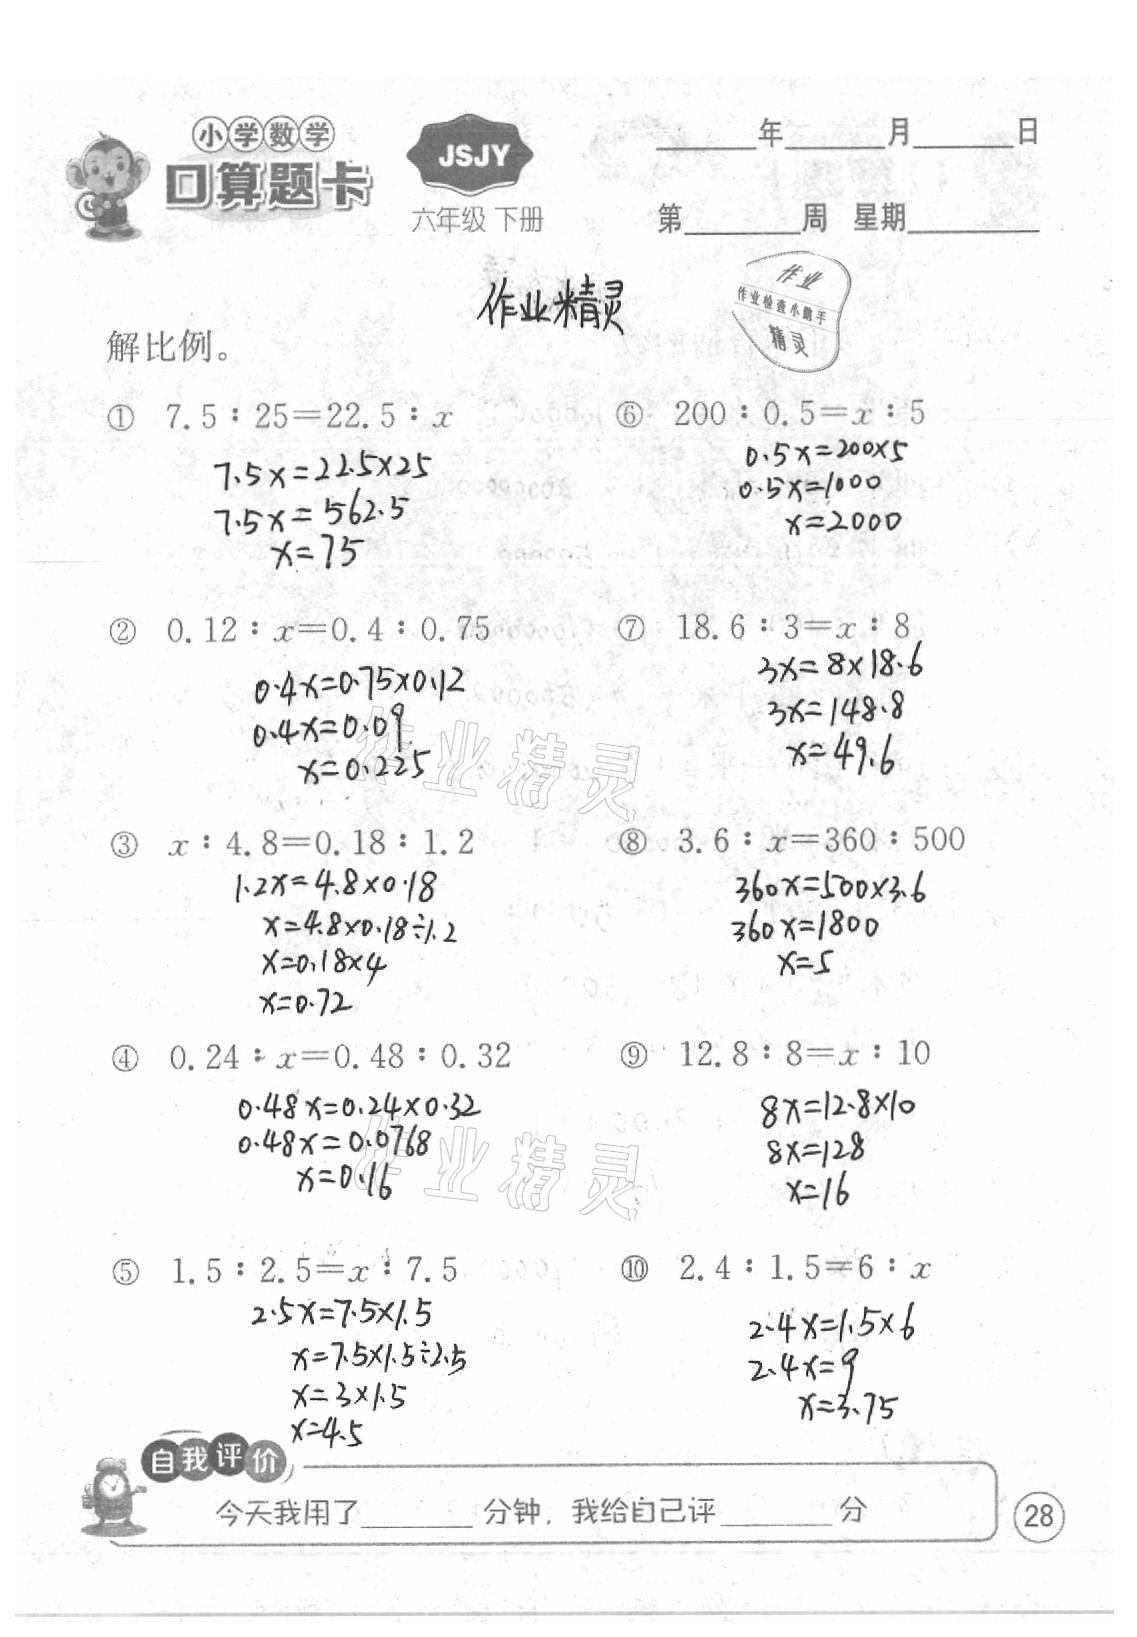 小学数学
口算题卡
JSJY
六年级 下册
______年______月______日
第______周 星期______
作业精灵
作业
作业检查小助手
精灵
解比例。
① 7.5∶25=22.5∶x
7.5x=22.5×25
7.5x=562.5
x=75
② 0.12∶x=0.4∶0.75
0.4x=0.75×0.12
0.4x=0.09
x=0.225
③ x∶4.8=0.18∶1.2
1.2x=4.8×0.18
x=4.8×0.18÷1.2
x=0.18×4
x=0.72
④ 0.24∶x=0.48∶0.32
0.48x=0.24×0.32
0.48x=0.0768
x=0.16
⑤ 1.5∶2.5=x∶7.5
2.5x=7.5×1.5
x=7.5×1.5÷2.5
x=3×1.5
x=4.5
⑥ 200∶0.5=x∶5
0.5x=200×5
0.5x=1000
x=2000
⑦ 18.6∶3=x∶8
3x=8×18.6
3x=148.8
x=49.6
⑧ 3.6∶x=360∶500
360x=500×3.6
360x=1800
x=5
⑨ 12.8∶8=x∶10
8x=12.8×10
8x=128
x=16
⑩ 2.4∶1.5=6∶x
2.4x=1.5×6
2.4x=9
x=3.75
作业精灵
作业精灵
自我评价
今天我用了______分钟，我给自己评______分
28